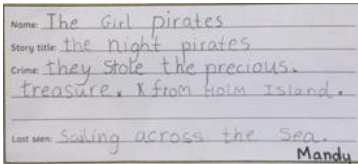 Name: The Girl pirates
Story title: the night pirates
Crime: they Stole the precious.
treasure. X from Holm Island.
Last seen: Sailing across the Sea.
Mandy